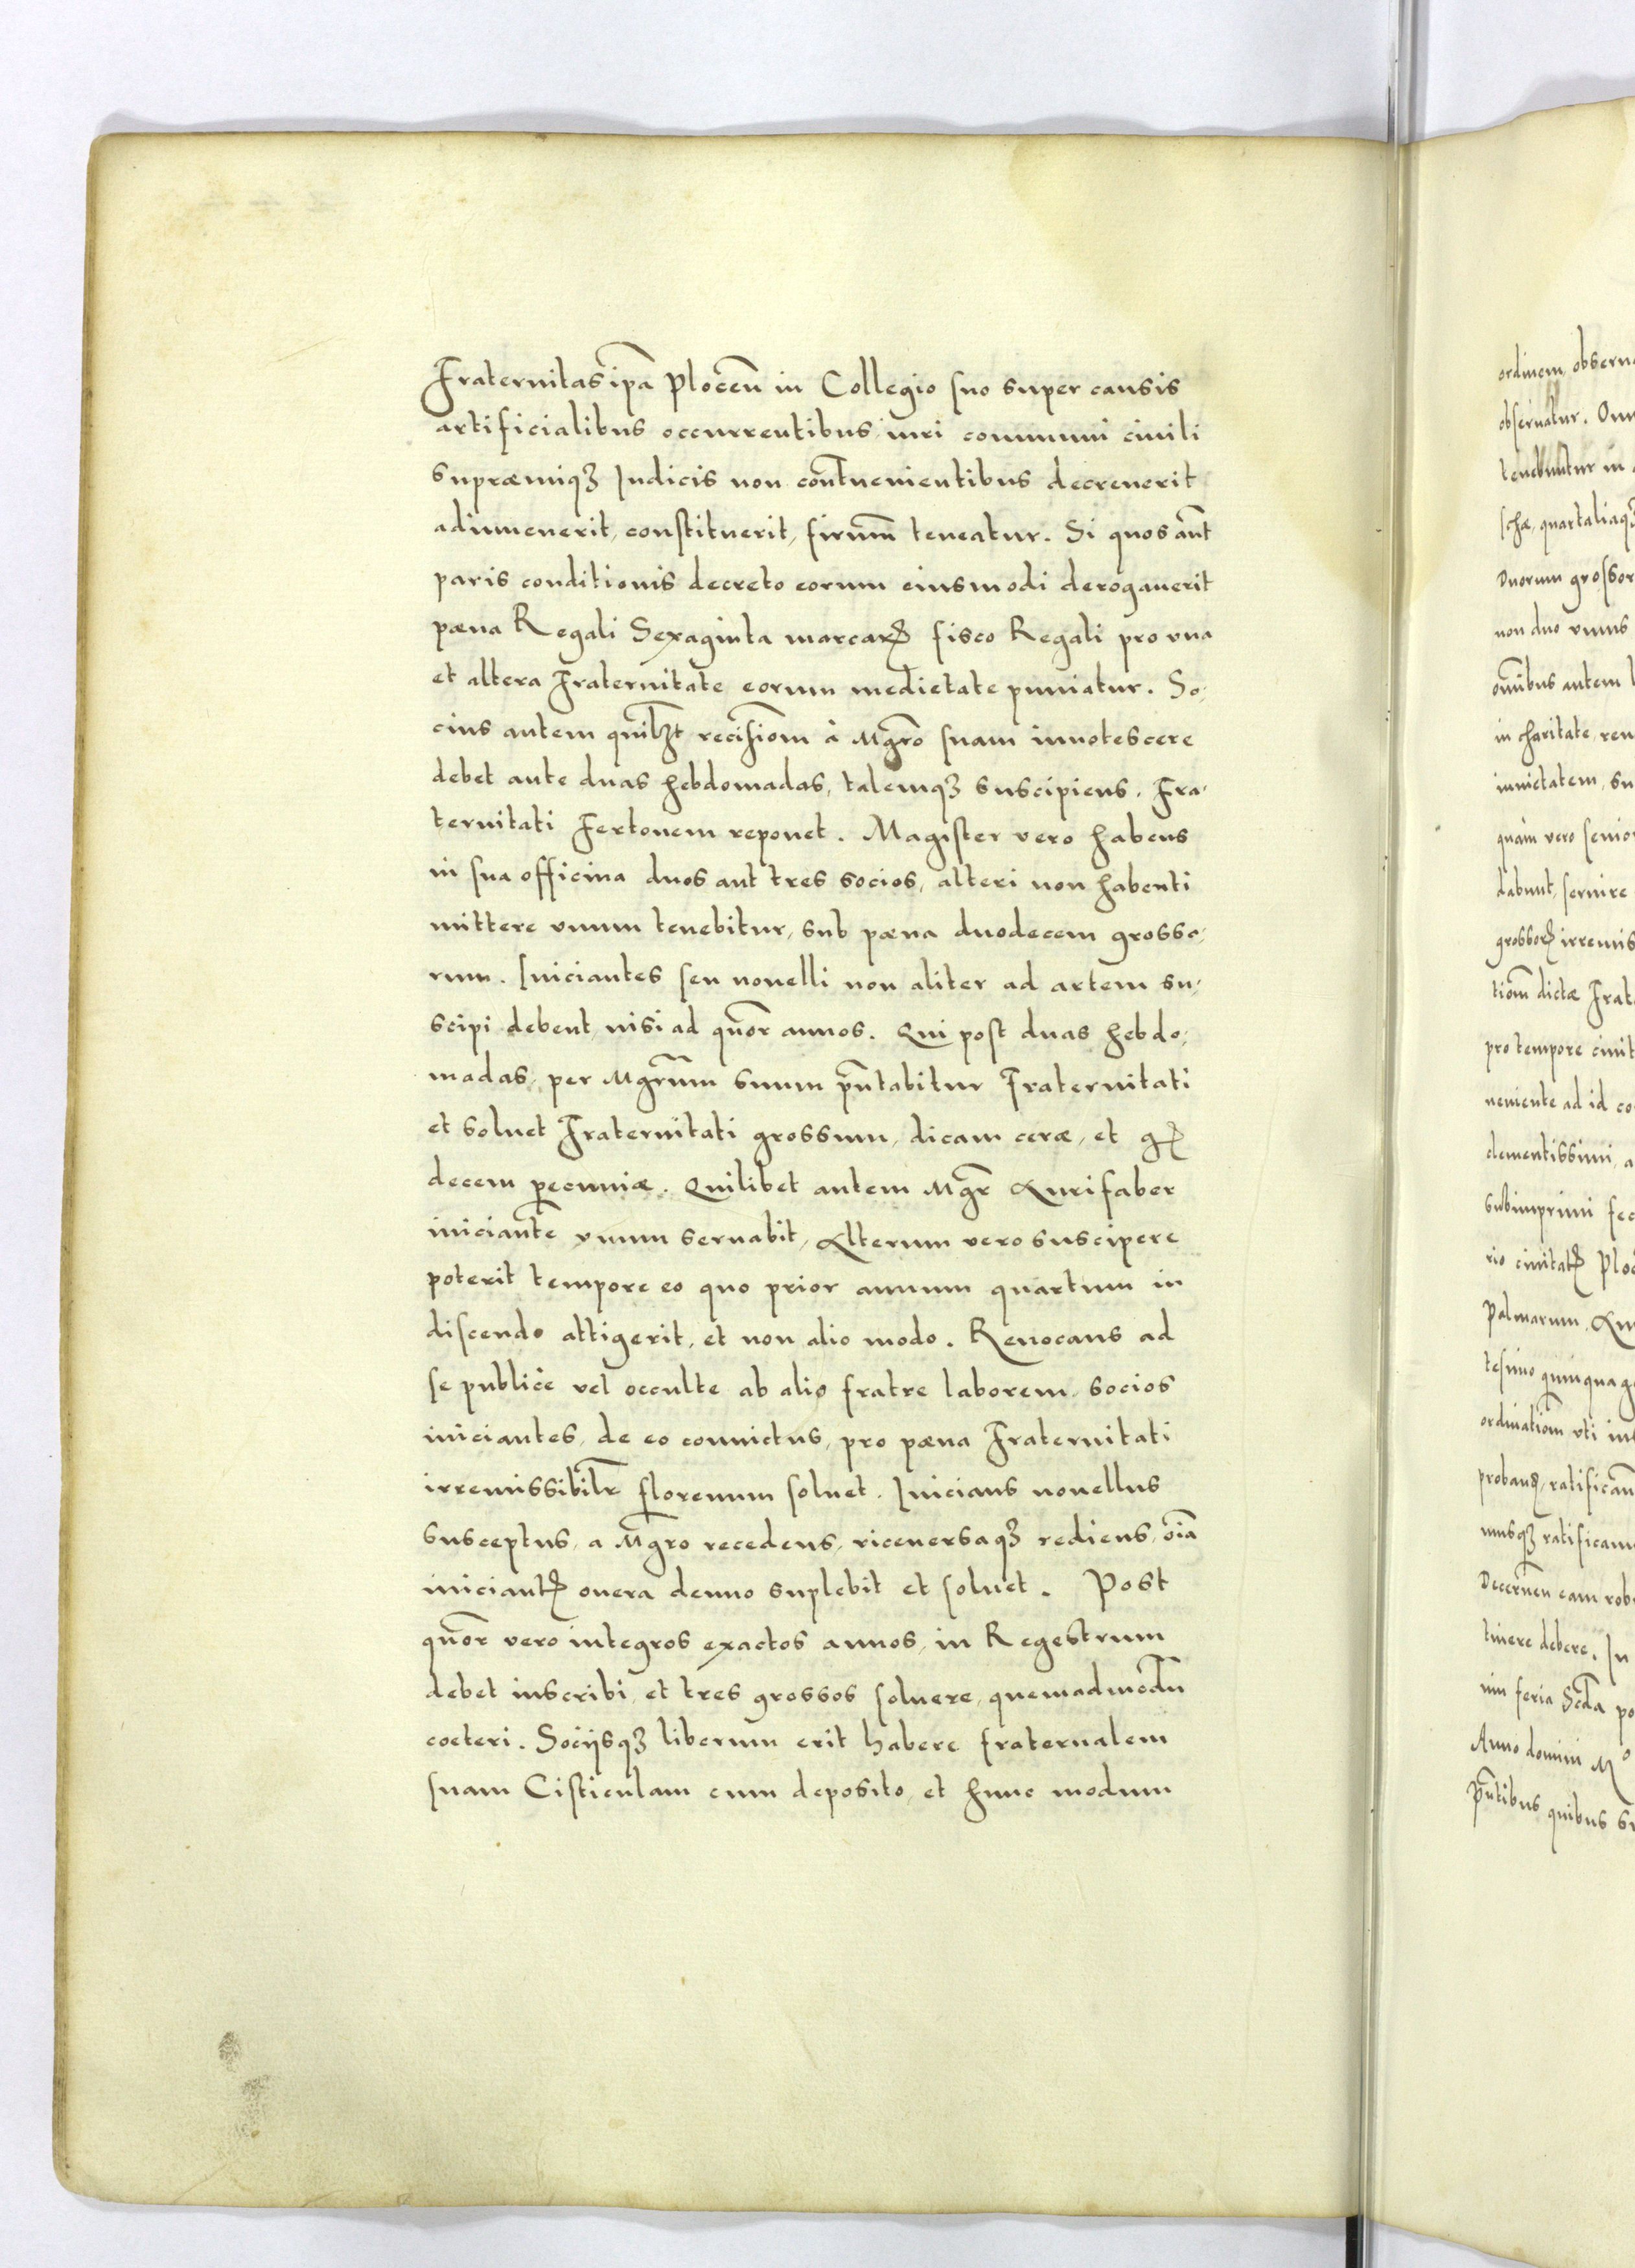 Fraternitas ip̃a Plocen̄ in Collegio suo super causis
artificialibus occurrentibus, iuri communi ciuili
supræmiqꝫ Iudicis non cont̃uenientibus decreuerit
adinuenerit, constituerit, firmū teneatur. Si quos aūt
paris conditionis decreto eorum eiusmodi derogauerit
pæna Regali Sexaginta marcarꝝ fisco Regali pro vna
et altera Fraternitate eorum medietate puniatur. So,
cius autem quilꝫt recisiom̄ à Mgr̃o suam innotescere
debet ante duas hebdomadas, talemqꝫ suscipiens. Fra,
ternitati Fertonem reponet. Magister vero habens
in sua officina duos aut tres socios, alteri non habenti
mittere vnum tenebitur, sub pæna duodecem grosso,
rum. Iniciantes seu nouelli non aliter ad artem su,
scipi debent, nisi ad quor̃ annos. Qui post duas hebdo,
madas, per Mgr̃um suum pr̃ntabitur Fraternitati
et soluet Fraternitati grossum, dicam ceræ, et gꝝ
decem pecuniæ. Quilibet autem Mgr̃ Aurifaber
iniciantē vnum seruabit, Alterum vero suscipere
poterit tempore eo quo prior annum quartum in
discendo attigerit, et non alio modo. Reuocans ad
se publicè vel occulte ab alio fratre laborem, socios
iniciantes, de eo conuictus, pro pæna Fraternitati
irremissibilr̃ florenum soluet. Inicians nouellus
susceptus, a Mgr̃o recedens, viceuersaqꝫ rediens, oīa
iniciantꝭ onera denuo suplebit et soluet. Post
quor̃ vero integros exactos annos, in Regestrum
debet inscribi, et tres grossos soluere, quemadmodū
coeteri. Sociisqꝫ liberum erit habere fraternalem
suam Cisticulam cum deposito, et hunc modum
ordinem obserua
obseruatur. Om
tenebuntur in
schæ, quartaliaqꝫ
Duorum grossor
non duo vnus
om̄ibus autem
in charitate
inuietatem, su
quàm vero senior
dabunt, seruire
grossorꝝ irremis
tiom̄ dictæ Frat
pro tempore ciuit
ueniente ad id co
clementissimi, a
subimprimi fec
rio ciuitatꝭ Ploc
Palmarum, An
tesimo quinquag
ordinatiom̄ vti in
ratificam
musqꝫ ratificam
Decernen̄ eam rob
tinere debere. In
nū feria Scd̃a po
Anno domini Mº
pr̃ntibus quibus su